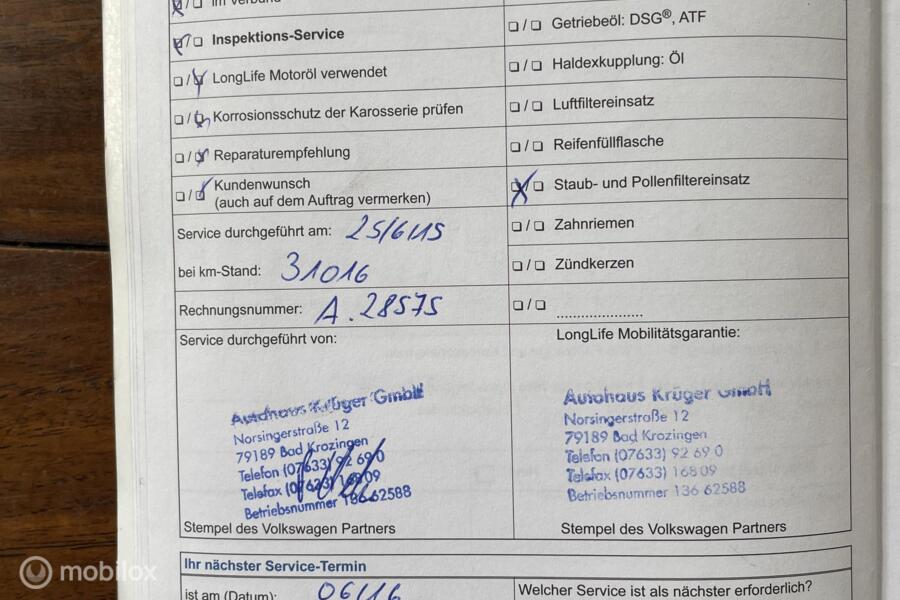 im Verbund
Inspektions-Service
LongLife Motoröl verwendet
Korrosionsschutz der Karosserie prüfen
Reparaturempfehlung
Kundenwunsch
(auch auf dem Auftrag vermerken)
Service durchgeführt am: 25/6/15
bei km-Stand: 31016
Rechnungsnummer: A. 28575
Getriebeöl: DSG®, ATF
Haldexkupplung: Öl
Luftfiltereinsatz
Reifenfüllflasche
Staub- und Pollenfiltereinsatz
Zahnriemen
Zündkerzen
......................
Service durchgeführt von:
Autohaus Krüger GmbH
Norsingerstraße 12
79189 Bad Krozingen
Telefon (07633) 92 69 0
Telefax (07633) 168 09
Betriebsnummer 136 62588
Stempel des Volkswagen Partners
LongLife Mobilitätsgarantie:
Autohaus Krüger GmbH
Norsingerstraße 12
79189 Bad Krozingen
Telefon (07633) 92 69 0
Telefax (07633) 168 09
Betriebsnummer 136 62588
Stempel des Volkswagen Partners
Ihr nächster Service-Termin
ist am (Datum): 06/16
Welcher Service ist als nächster erforderlich?
mobilox